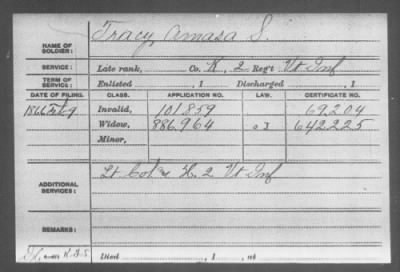 NAME OF SOLDIER: Tracy, Amasa S.
SERVICE: Late rank, Co. K, 2 Reg't Vt Inf
TERM OF SERVICE: Enlisted , 1 Discharged , 1
DATE OF FILING. CLASS. APPLICATION NO. LAW. CERTIFICATE NO.
1866 Feb 9 Invalid, 101.859 69.204
Widow, 886.964 642.225
Minor,
ADDITIONAL SERVICES: Lt Col & K. 2 Vt Inf
REMARKS:
Died , 1 , at